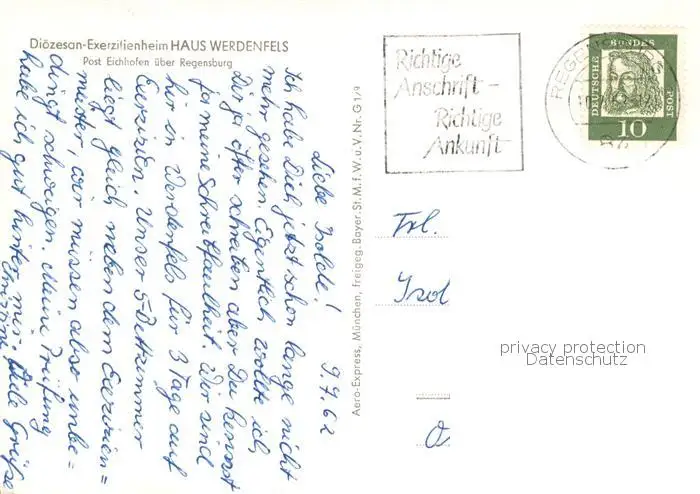 Diözesan-Exerzitienheim HAUS WERDENFELS
Post Eichhofen über Regensburg
Liebe Isolde! 9.4.62
Ich habe Dich jetzt schon lange nicht
mehr gesehen. Eigentlich wollte ich
Dir ja öfter schreiben aber Du kennst
ja meine Schreibfaulheit. Wir sind
hir in Werdenfels für 3 Tage auf
Exerzizien. Unser 5-Bettzimmer
liegt gleich neben dem Exerzizien=
meister, wir müssen also unbe=
dingt schweigen. Meine Prüfung
habe ich gut hinter mir. Viele Grüße
Aero-Express, München, freigeg. Bayer. St. M. f. W. u. V. Nr. G 1/9
Richtige
Anschrift -
Richtige
Ankunft
REGENS
DEUTSCHE
BUNDES
POST
10
Frl.
Isol
privacy protection
Datenschutz